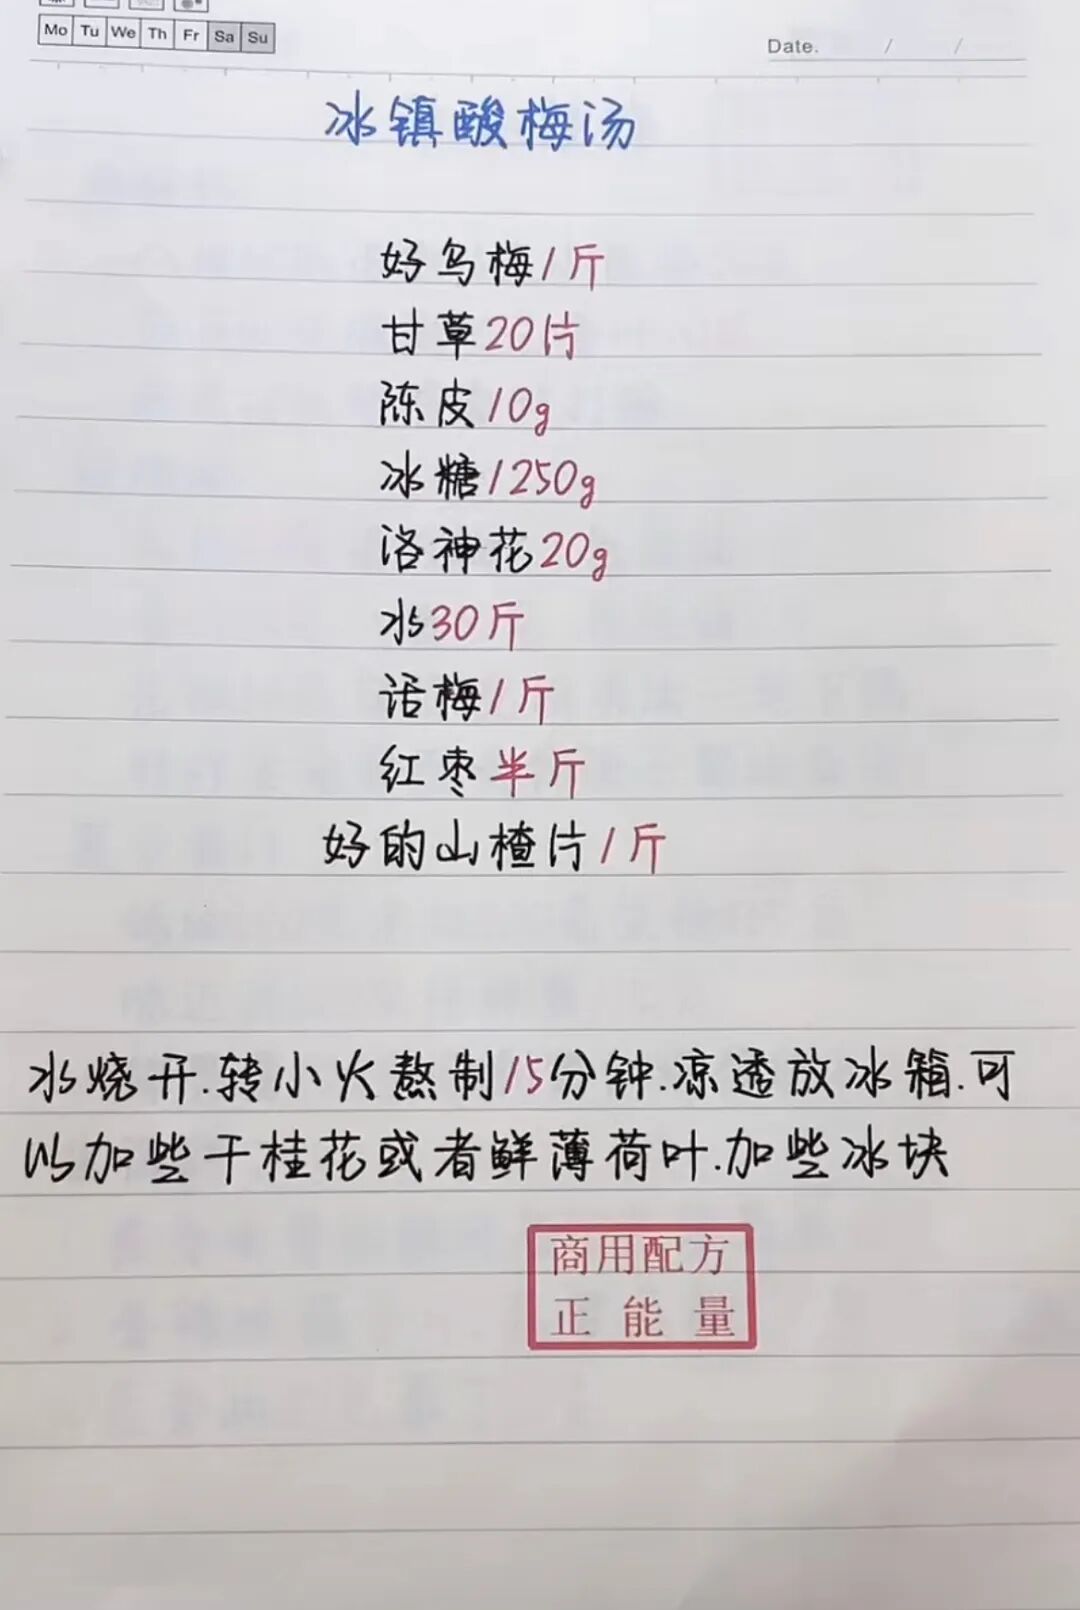 Mo Tu We Th Fr Sa Su
Date. / /
冰镇酸梅汤
好乌梅1斤
甘草20片
陈皮10g
冰糖1250g
洛神花20g
水30斤
话梅1斤
红枣半斤
好的山楂片1斤
水烧开.转小火熬制15分钟.凉透放冰箱.可
以加些干桂花或者鲜薄荷叶.加些冰块
商用配方
正能量